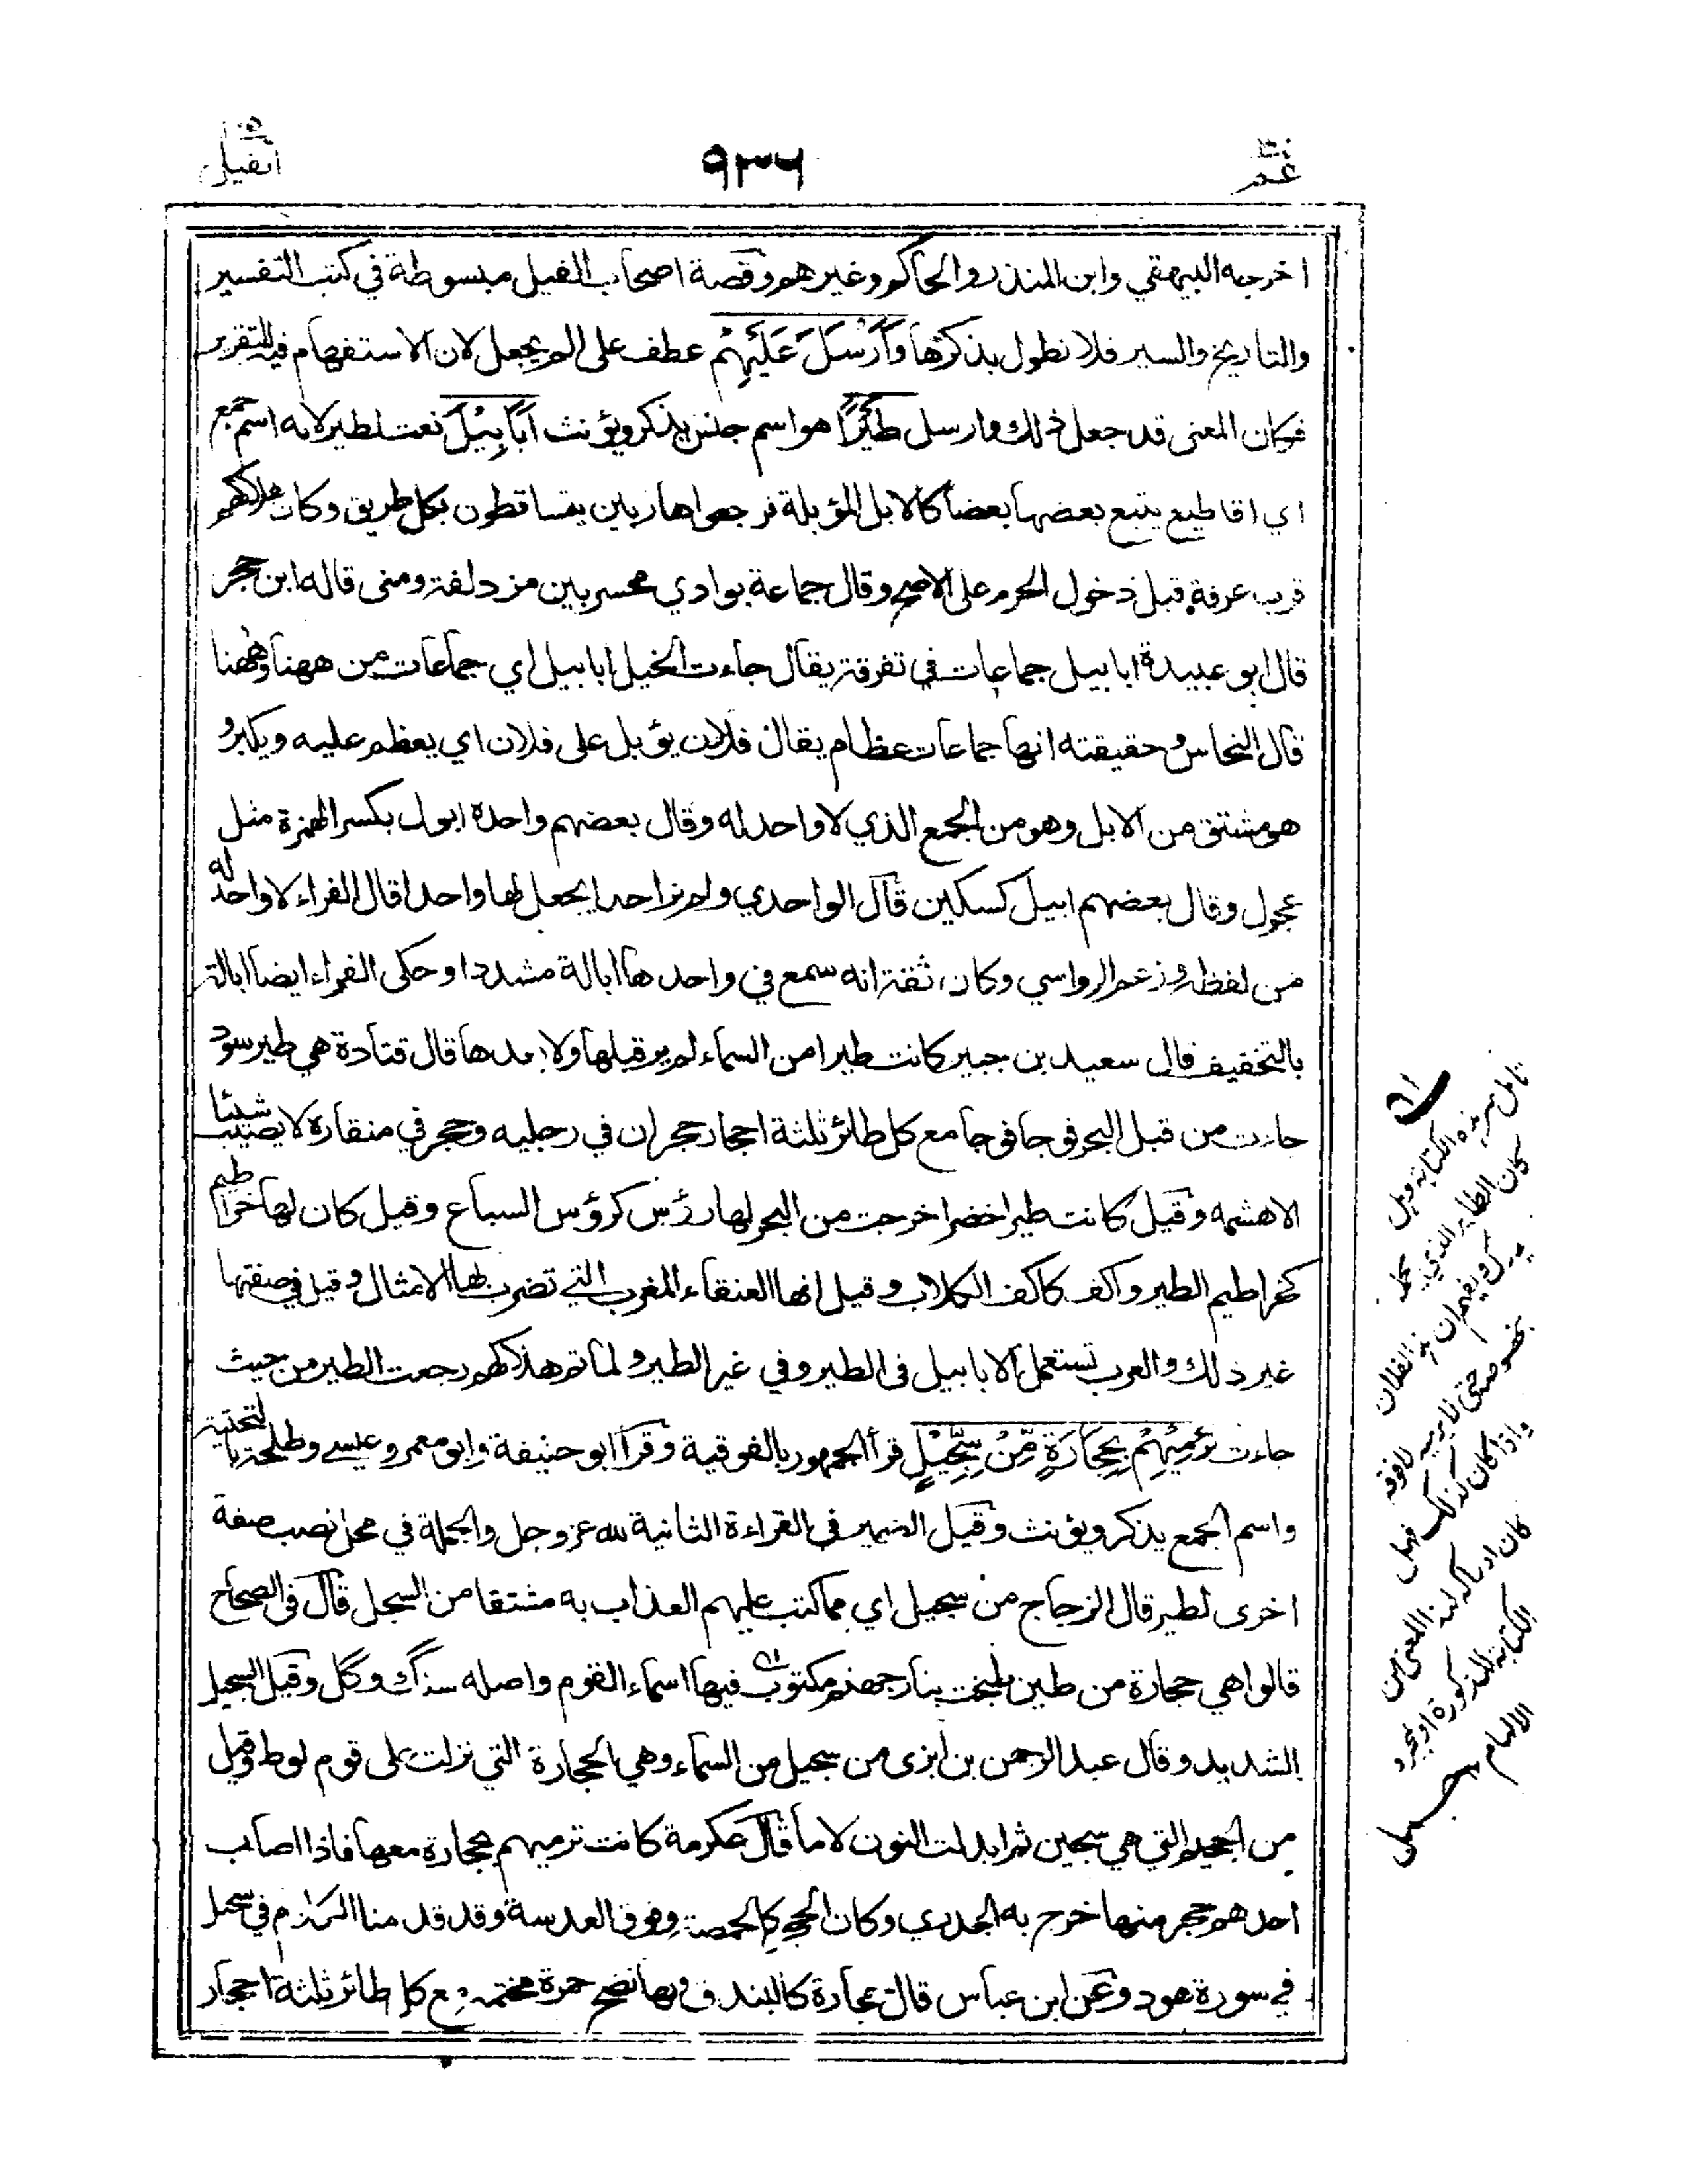 عم
٩٣٦
الفيل
اخرجه البيهقي وابن المنذر والحاكم وغيرهم وقصة اصحاب الفيل مبسوطة في كتب التفسير
والتاريخ والسير فلا نطول بذكرها وَاَرْسَلَ عَلَيْهِمْ عطف على الم يجعل لان الاستفهام فيه للتقرير
فكان المعنى قد جعل ذلك وارسل طَيْرًا هو اسم جنس يذكر ويؤنث اَبَابِيْلَ نعت لطير لانه اسم جمع
اي اقاطيع يتبع بعضها بعضا كالابل المؤبلة فرجعوا هاربين يتساقطون بكل طريق وكان هلاكهم
قرب عرفة قبل دخول الحرم على الاصح وقال جماعة بوادي محسر بين مزدلفة ومنى قاله ابن حجر
قال ابو عبيدة ابابيل جماعات في تفرقة يقال جاءت الخيل ابابيل اي جماعات من ههنا وههنا
قال النحاس وحقيقته انها جماعات عظام يقال فلان يؤبل على فلان اي يعظم عليه ويكبر و
هو مشتق من الابل وهو من الجمع الذي لا واحد له وقال بعضهم واحده ابول بكسر الهمزة مثل
عجول وقال بعضهم ابيل كسكين قال الواحدي ولم نر احدا يجعل لها واحدا قال الفراء لا واحد له
من لفظه وزعم الرواسي وكان ثقة انه سمع في واحدها ابالة مشددا وحكى الفراء ايضا ابالة
بالتخفيف قال سعيد بن جبير كانت طيرا من السماء لم ير قبلها ولا بعدها قال قتادة هي طير سود
جاءت من قبل البحر فوجا فوجا مع كل طائر ثلثة احجار حجران في رجليه وحجر في منقاره لا يصيب شيئا
الا هشمه وقيل كانت طيرا خضرا خرجت من البحر لها رؤس كرؤس السباع وقيل كان لها خراطيم
كخراطيم الطير واكف كاكف الكلاب وقيل انها العنقاء المغرب التي تضرب بها الامثال وقيل في صفتها
غير ذلك والعرب تستعمل الابابيل في الطير وفي غير الطير ولما تم هلاكهم رجعت الطير من حيث
جاءت تَرْمِيْهِمْ بِحِجَارَةٍ مِّنْ سِجِّيْلٍ قرأ الجمهور بالفوقية وقرأ ابو حنيفة وابو معمر وعيسى وطلحة بالتحتية
واسم الجمع يذكر ويؤنث وقيل الضمير في القراءة الثانية لله عز وجل والجملة في محل نصب صفة
اخرى لطير قال الزجاج من سجيل اي مما كتب عليهم العذاب به مشتقا من السجل قال في الصحاح
قالوا هي حجارة من طين طبخت بنار جهنم مكتوب فيها اسماء القوم واصله سنگ وگل وقيل السجيل
الشديد وقال عبد الرحمن بن ابزى من سجيل من السماء وهي الحجارة التي نزلت على قوم لوط وقيل
من الجحيم التي هي سجين ثم ابدلت النون لاما قال عكرمة كانت ترميهم بحجارة معها فاذا اصاب
احدهم حجر منها خرج به الجدري وكان الحجر كالحمصة وفوق العدسة وقد قدمنا الكلام في سجيل
في سورة هود وعن ابن عباس قال حجارة كالبندق وبها نضح حمرة مختمة مع كل طائر ثلثة احجار
كان الطاير الذي يحمله
واذا كان كذلك فهل
الكتابة المذكورة او بمجرد
الالهام